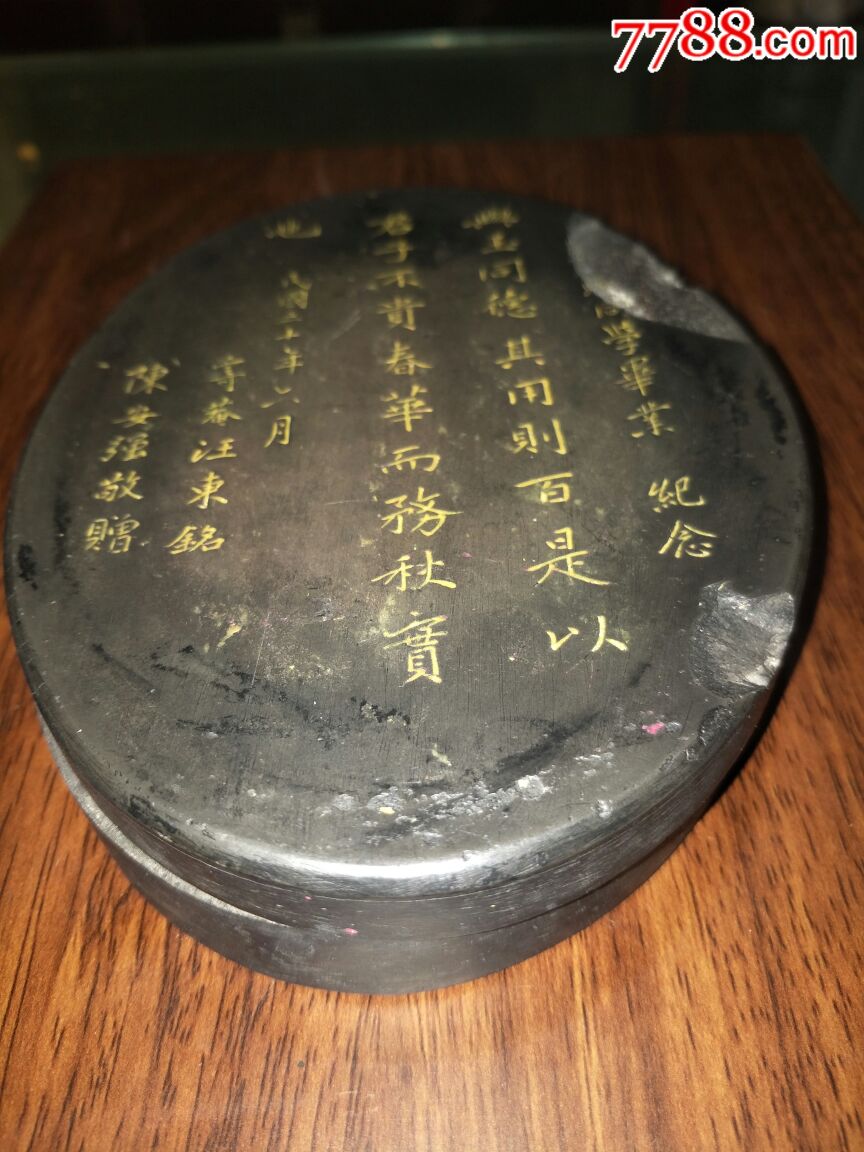 7788.com
同學畢業 紀念
與玉同德其用則百是以
君子不貴春華而務秋實
也 民國二十年六月
守菴汪東銘
陳安強敬贈